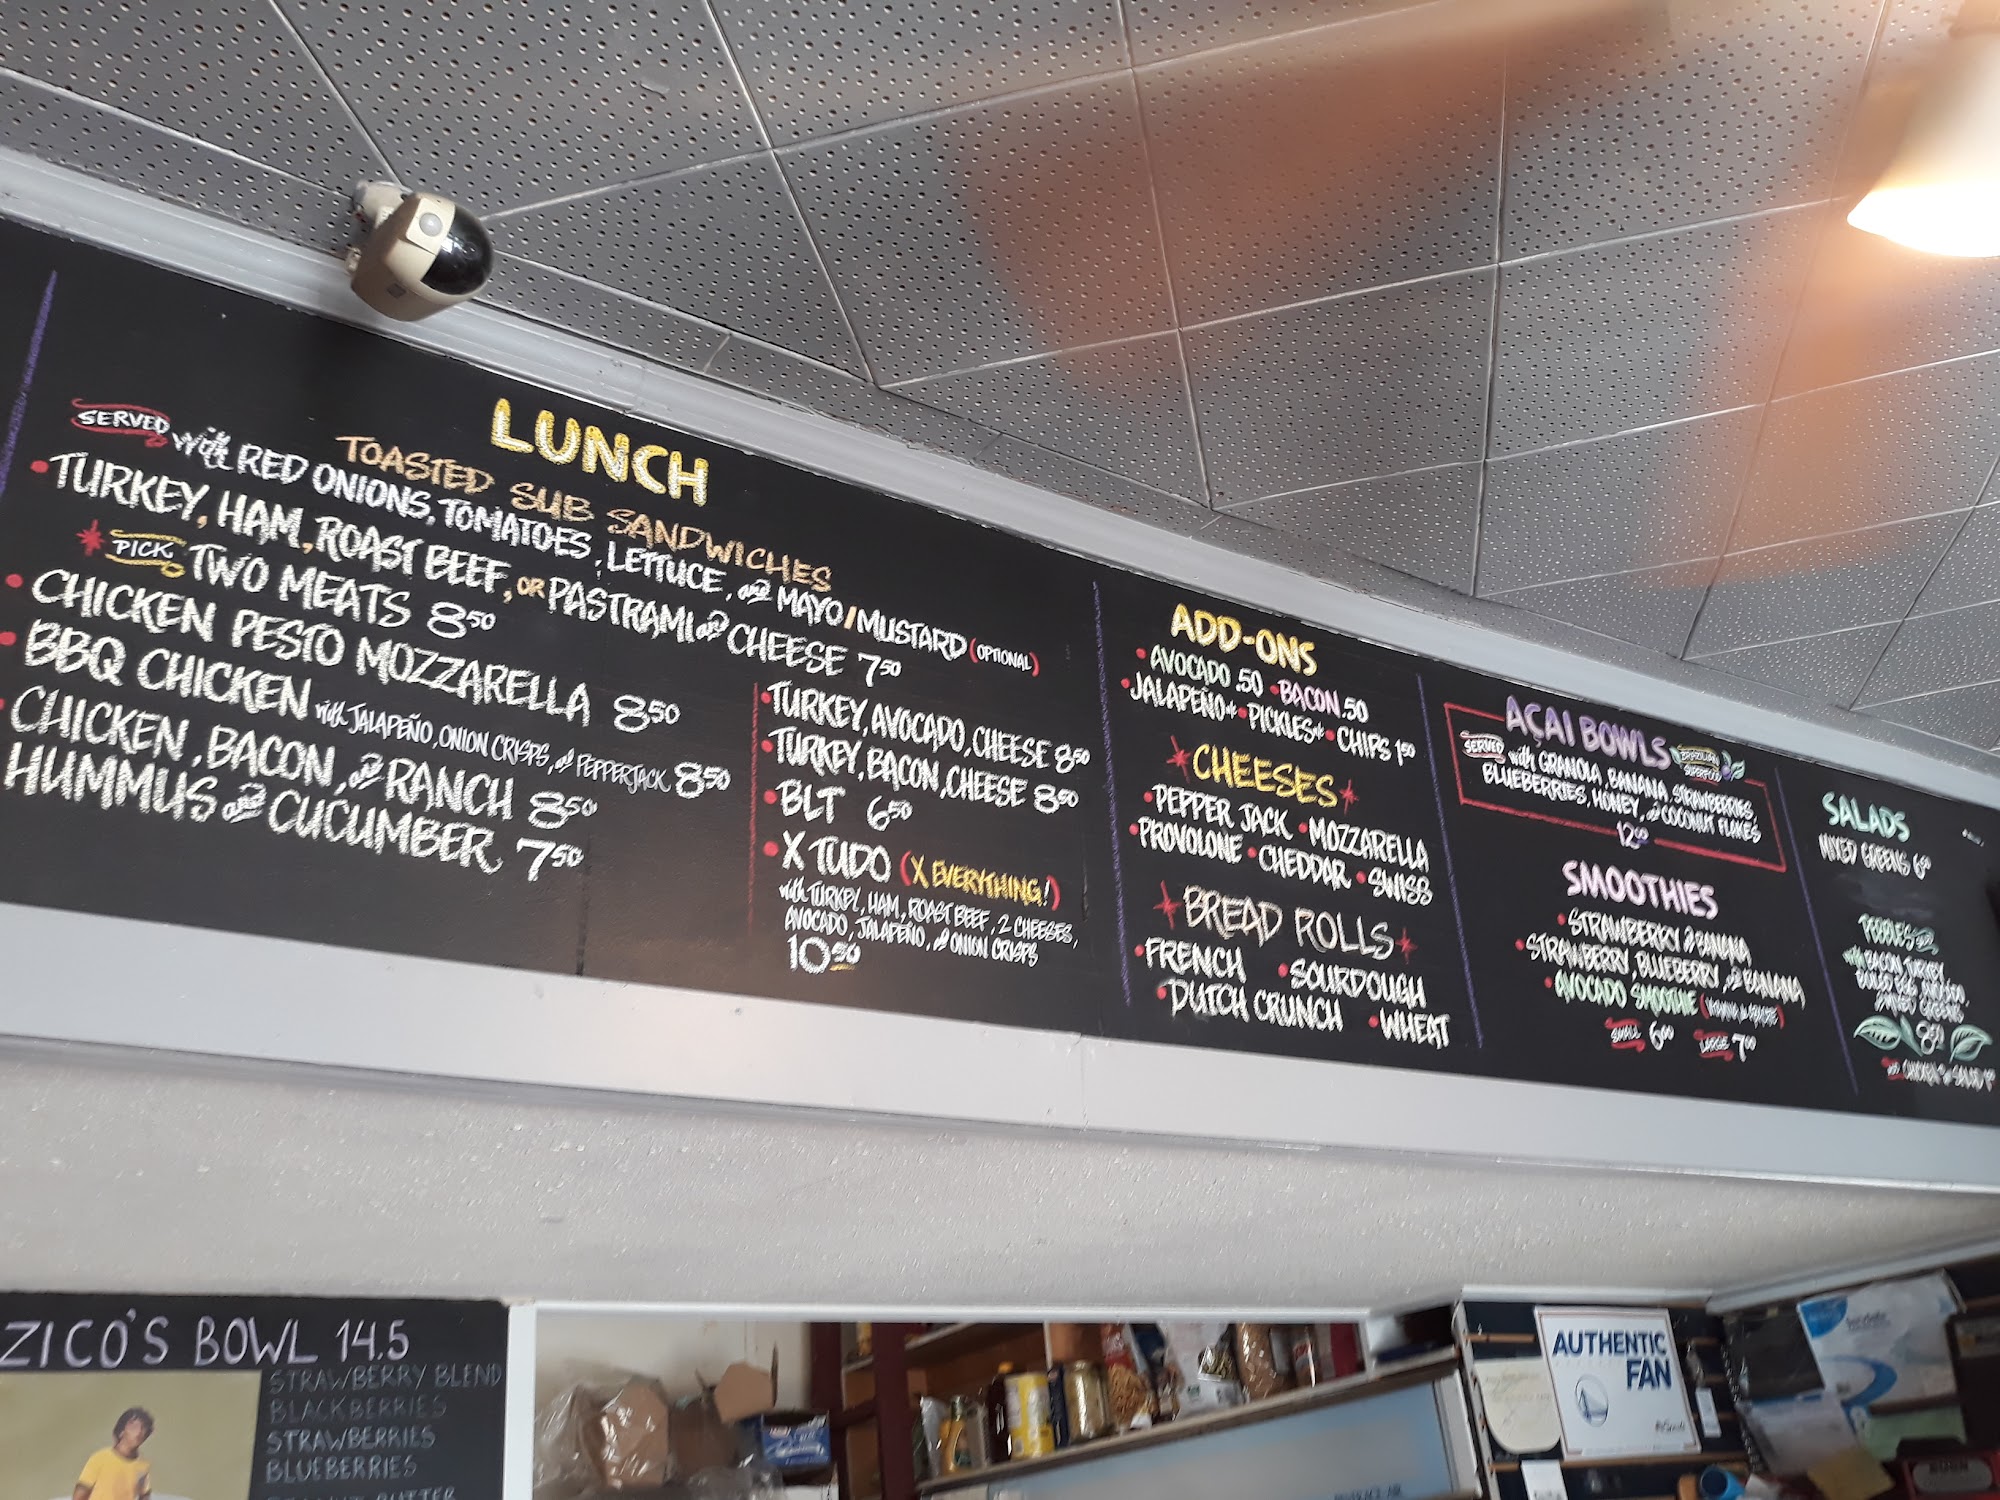 LUNCH
TOASTED SUB SANDWICHES
SERVED with RED ONIONS, TOMATOES, LETTUCE, and MAYO/MUSTARD (OPTIONAL)
• TURKEY, HAM, ROAST BEEF, OR PASTRAMI and CHEESE 7.50
* PICK TWO MEATS 8.50
• CHICKEN PESTO MOZZARELLA 8.50
• BBQ CHICKEN with JALAPEÑO, ONION CRISPS, and PEPPERJACK 8.50
• CHICKEN, BACON, and RANCH 8.50
HUMMUS and CUCUMBER 7.50
• TURKEY, AVOCADO, CHEESE 8.50
• TURKEY, BACON, CHEESE 8.50
• BLT 6.50
• X TUDO (X EVERYTHING!)
with TURKEY, HAM, ROAST BEEF, 2 CHEESES,
AVOCADO, JALAPEÑO, and ONION CRISPS
10.50
ADD-ONS
• AVOCADO .50 • BACON .50
• JALAPEÑO • PICKLES • CHIPS 1.50
* CHEESES *
• PEPPER JACK • MOZZARELLA
• PROVOLONE • CHEDDAR • SWISS
* BREAD ROLLS *
• FRENCH • SOURDOUGH
• DUTCH CRUNCH • WHEAT
AÇAI BOWLS BRAZILIAN SUPERFOOD
SERVED with GRANOLA, BANANA, STRAWBERRIES,
BLUEBERRIES, HONEY, and COCONUT FLAKES
12.00
SMOOTHIES
• STRAWBERRY and BANANA
• STRAWBERRY, BLUEBERRY, and BANANA
• AVOCADO SMOOTHIE
SMALL 6.00 LARGE 7.00
SALADS
MIXED GREENS 6.00
PEBBLES
with BACON, TURKEY,
BOILED EGG, AVOCADO,
MIXED GREENS
ZICO'S BOWL 14.5
STRAWBERRY BLEND
BLACKBERRIES
STRAWBERRIES
BLUEBERRIES
AUTHENTIC
FAN